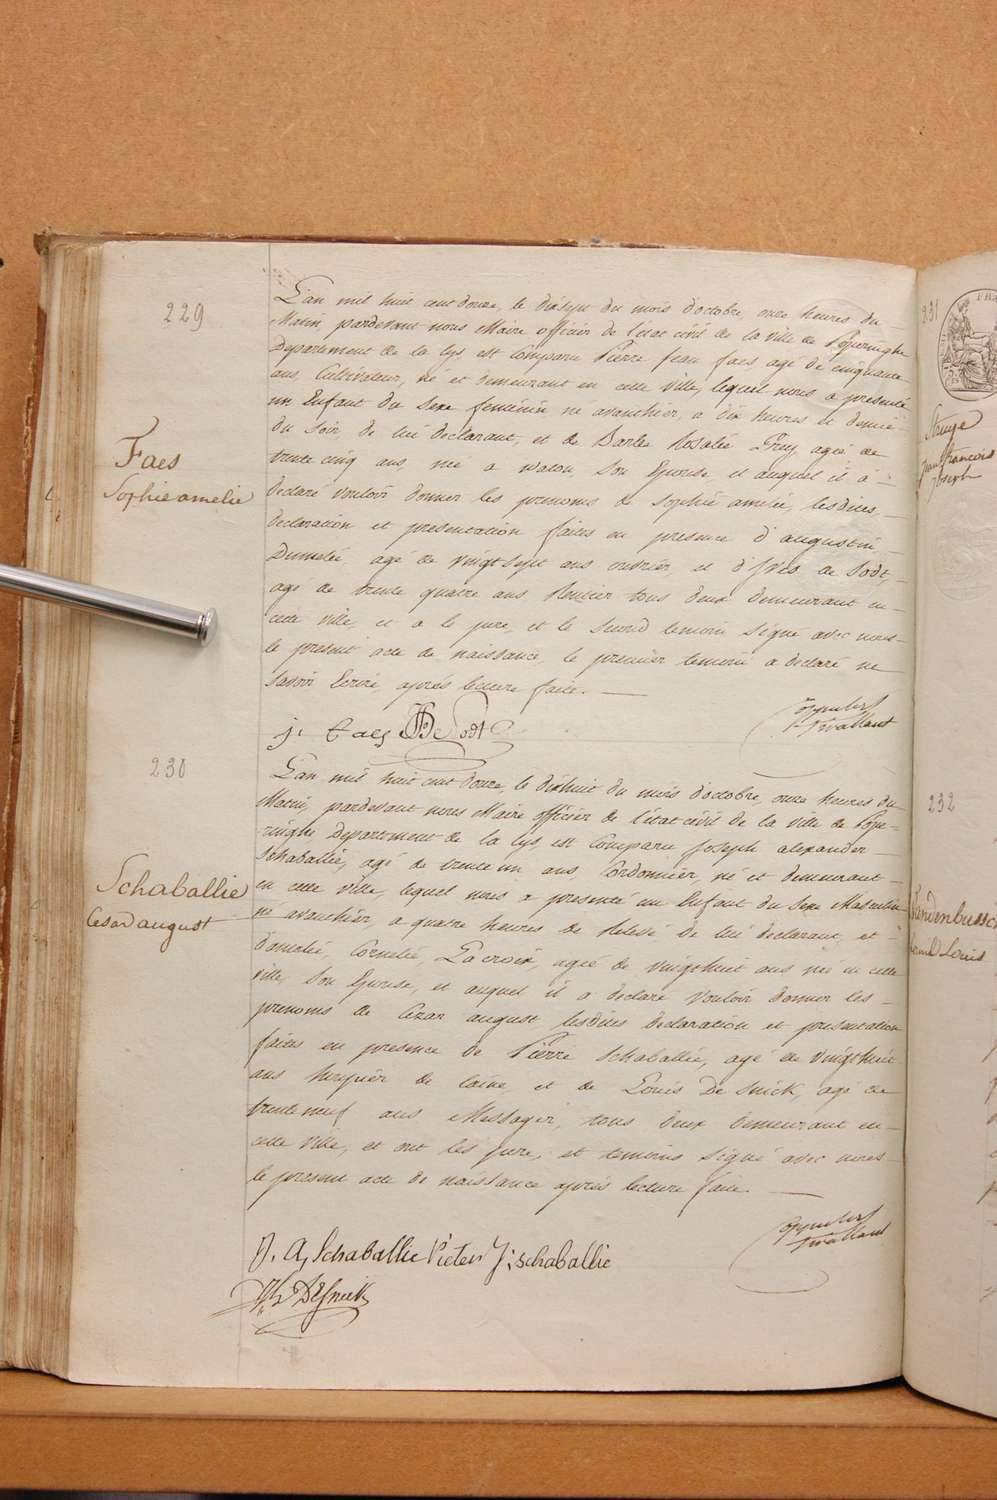 229
L'an mil huit cent douze, le dixsept du mois d'octobre, onze heures du
Matin, pardevant nous Maire officier de l'état civil de la ville de Poperinghe
Département de la Lys est Comparu Pierre Jean faes agé de cinquante
ans, Cultivateur, né et demeurant en cette ville, lequel nous a presenté
un Enfant du Sexe feminin né avanthier, a dix heures et demie
Faes
Sophie amelie
du Soir de lui declarant, et de Barbe Rosalie agée de
trente cinq ans, née a watou, Son Epouse, et auquel il a
declaré vouloir donner les prenoms de Sophie amelie, lesdites
declaration et presentation faites en presence d'augustin
Dumelie, agé de vingtsept ans ouvrier et d'Ives de Sodt,
agé de trente quatre ans tous deux demeurant en
cette ville, et a le pere, et le Second temoin Signé avec nous
le present acte de naissance, le premier temoin a declaré ne
Savoir Ecrire, après lecture faite.
j. Faes De Sodt
230
L'an mil huit cent douze, le dixhuit du mois d'octobre, onze heures du
Matin, pardevant nous Maire officier de l'état civil de la ville de Pope-
ringhe département de la Lys est Comparu Joseph alexander
Schaballie
Cesar august
Schaballie, agé de trente un ans, Cordonnier, né et demeurant
en cette ville, lequel nous a presenté un Enfant du Sexe Masculin
né avanthier, a quatre heures de Relevé de lui declarant, et
d'amelie, Cornelie, Lacroix, agée de vingthuit ans née en cette
ville, Son Epouse, et auquel il a declaré vouloir donner les
prenoms de Cezar august lesdites declaration et presentation
faites en presence de Pierre Schaballie, agé de vingthuit
ans de laine, et de Louis De Snick, agé de
trente neuf ans Messager, tous deux demeurant en
cette ville, et ont les pere, et temoins Signé avec nous
le present acte de naissance après lecture faite.
J. A, Schaballie Pieter J: Schaballie
DeSnick
231
Jean francois
Joseph
232
Louis